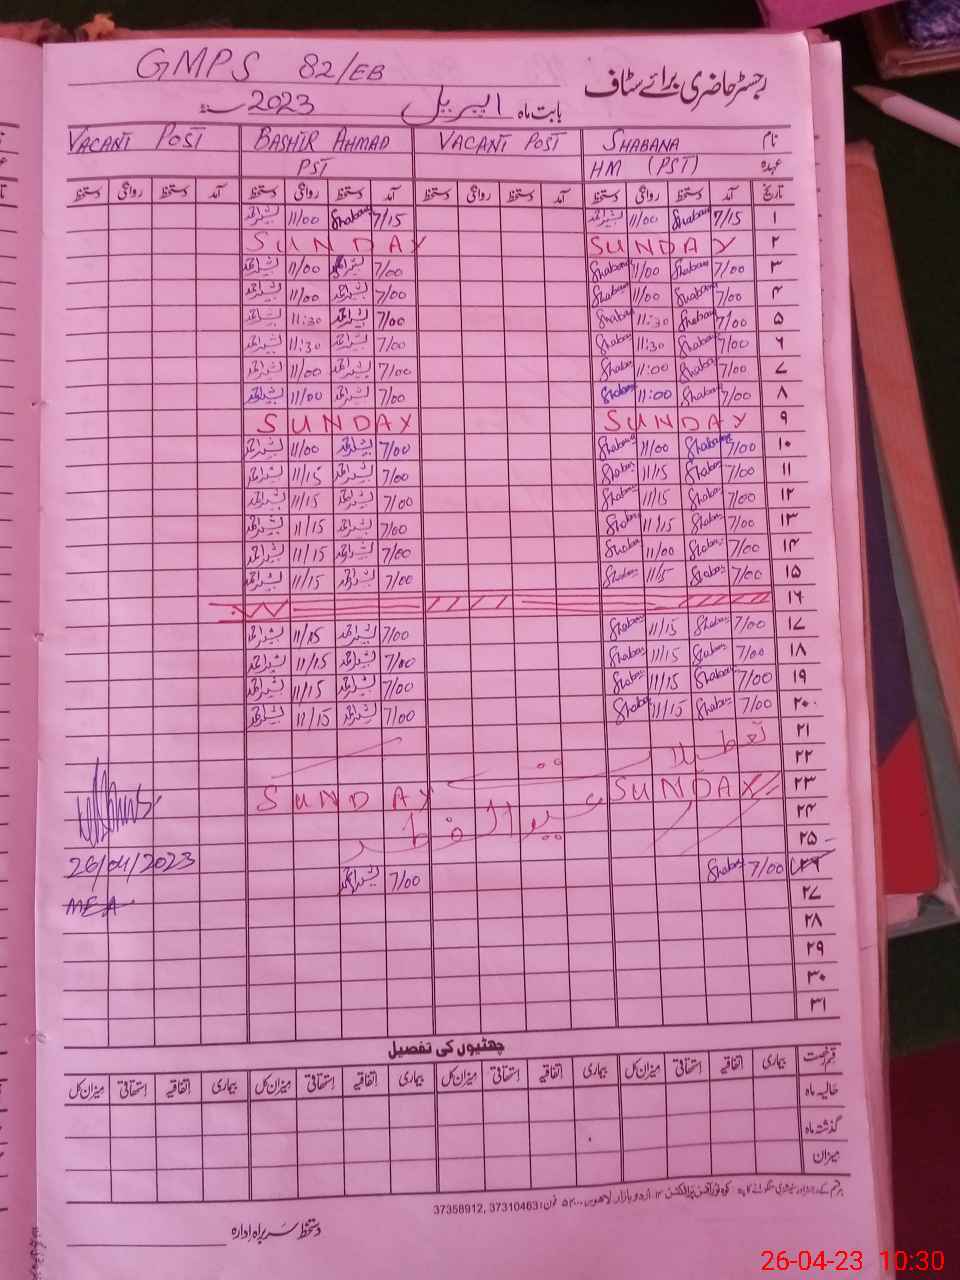 GMPS 82/EB
رجسٹر حاضری برائے سٹاف
بابت ماہ اپریل 2023
نام SHABANA VACANT POST BASHIR AHMAD VACANT POST
عہدہ HM (PST) PST
تاریخ آمد دستخط روانگی دستخط آمد دستخط روانگی دستخط آمد دستخط روانگی دستخط آمد دستخط روانگی دستخط
۱ 7/15 Shabana 11/00 بشیر احمد 7/15 Shabana 11/00 بشیر احمد
۲ SUNDAY SUNDAY
۳ 7/00 Shabana 11/00 Shabana 7/00 بشیر احمد 11/00 بشیر احمد
۴ 7/00 Shabana 11/00 Shabana 7/00 بشیر احمد 11/00 بشیر احمد
۵ 7/00 Shabana 11:30 Shabana 7/00 بشیر احمد 11:30 بشیر احمد
۶ 7/00 Shabana 11:30 Shabana 7/00 بشیر احمد 11:30 بشیر احمد
۷ 7/00 Shabana 11:00 Shabana 7/00 بشیر احمد 11/00 بشیر احمد
۸ 7/00 Shabana 11:00 Shabana 7/00 بشیر احمد 11/00 بشیر احمد
۹ SUNDAY SUNDAY
۱۰ 7/00 Shabana 11/00 Shabana 7/00 بشیر احمد 11/00 بشیر احمد
۱۱ 7/00 Shabana 11/15 Shabana 7/00 بشیر احمد 11/15 بشیر احمد
۱۲ 7/00 Shabana 11/15 Shabana 7/00 بشیر احمد 11/15 بشیر احمد
۱۳ 7/00 Shabana 11/15 Shabana 7/00 بشیر احمد 11/15 بشیر احمد
۱۴ 7/00 Shabana 11/00 Shabana 7/00 بشیر احمد 11/15 بشیر احمد
۱۵ 7/00 Shabana 11/15 Shabana 7/00 بشیر احمد 11/15 بشیر احمد
۱۶
۱۷ 7/00 Shabana 11/15 Shabana 7/00 بشیر احمد 11/15 بشیر احمد
۱۸ 7/00 Shabana 11/15 Shabana 7/00 بشیر احمد 11/15 بشیر احمد
۱۹ 7/00 Shabana 11/15 Shabana 7/00 بشیر احمد 11/15 بشیر احمد
۲۰ 7/00 Shabana 11/15 Shabana 7/00 بشیر احمد 11/15 بشیر احمد
۲۱
۲۲ تعطیلات
۲۳ SUNDAY SUNDAY
۲۴ عیدالفطر
۲۵
۲۶ 7/00 Shabana 7/00 بشیر احمد 26/04/2023
۲۷ MEA
۲۸
۲۹
۳۰
۳۱
چھٹیوں کی تفصیل
قسم رخصت بیماری اتفاقیہ استحقاقی میزان کل بیماری اتفاقیہ استحقاقی میزان کل بیماری اتفاقیہ استحقاقی میزان کل
حالیہ ماہ
گذشتہ ماہ
میزان
اردو بازار لاہور فون: 37310463, 37358912
دستخط سربراہ ادارہ
26-04-23 10:30